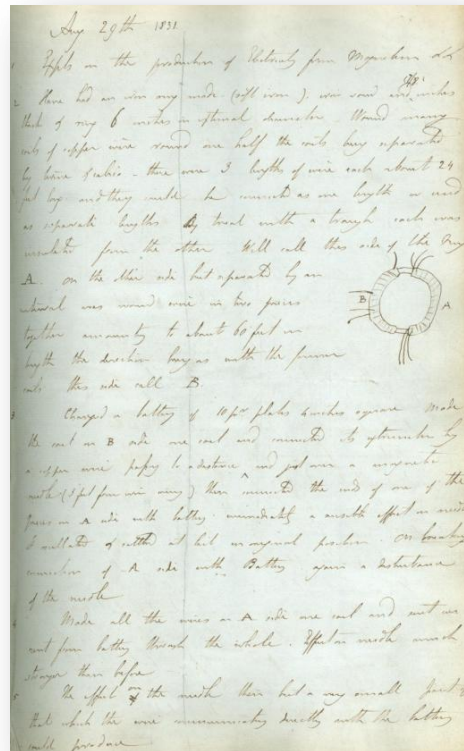 Aug 29th 1831
1 Expts on the production of Electricity from Magnetism &c &c
2 Have had an iron ring made (soft iron), iron round and 7/8 inches
thick & ring 6 inches in external diameter. Wound many
coils of copper wire round one half the coils being separated
by twine & calico - there were 3 lengths of wire each about 24
feet long and they could be connected as one length or used
as separate lengths. By trial with a trough each was
insulated from the other. Will call this side of the ring
A. on the other side but separated by an
interval was wound wire in two pieces
together amounting to about 60 feet in
length the direction being as with the former
coils this side call B
B A
3 Charged a battery of 10 pr plates 4 inches square Made
the coil on B side one coil and connected its extremities by
a copper wire passing to a distance and just over a magnetic
needle (3 feet from iron ring) then connected the ends of one of the
pieces on A side with battery. immediately a sensible effect on needle
It oscillated & settled at last in original position On breaking
connection of A side with Battery again a disturbance
of the needle
4 Made all the wires on A side one coil and sent
current from battery through the whole. Effect on needle much
stronger than before
5 The effect on the needle then but a very small part of
that which the wire communicating directly with the battery
could produce